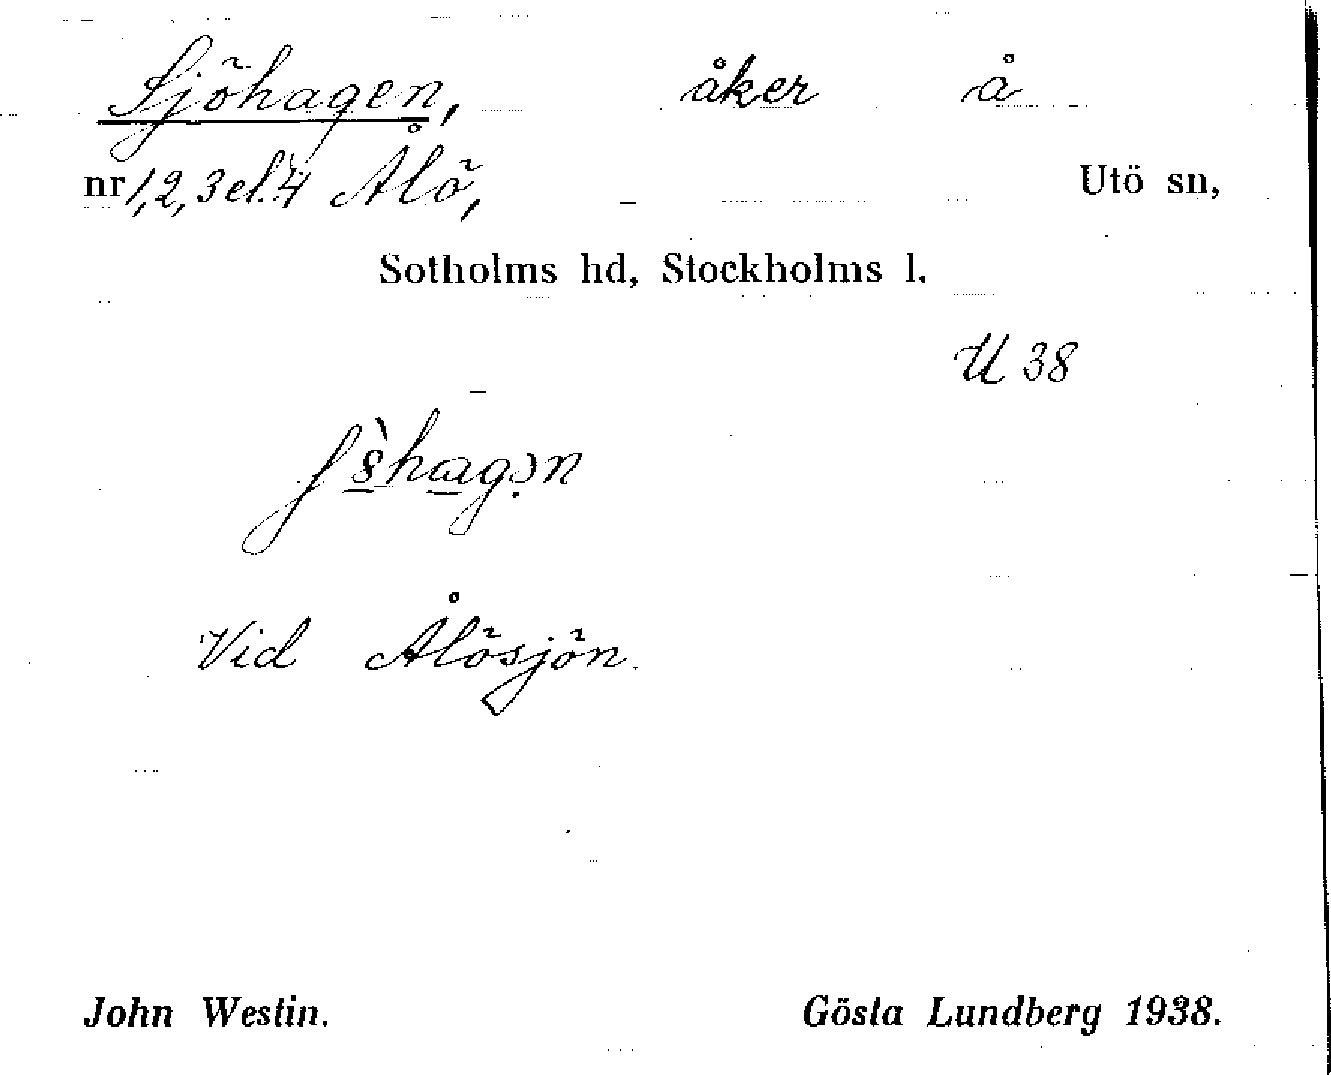 Sjöhagen, åker å
nr 1,2,3 el. 4 Ålö, Utö sn,
Sotholms hd, Stockholms l.
U 38
Vid Ålösjön.
John Westin. Gösta Lundberg 1938.